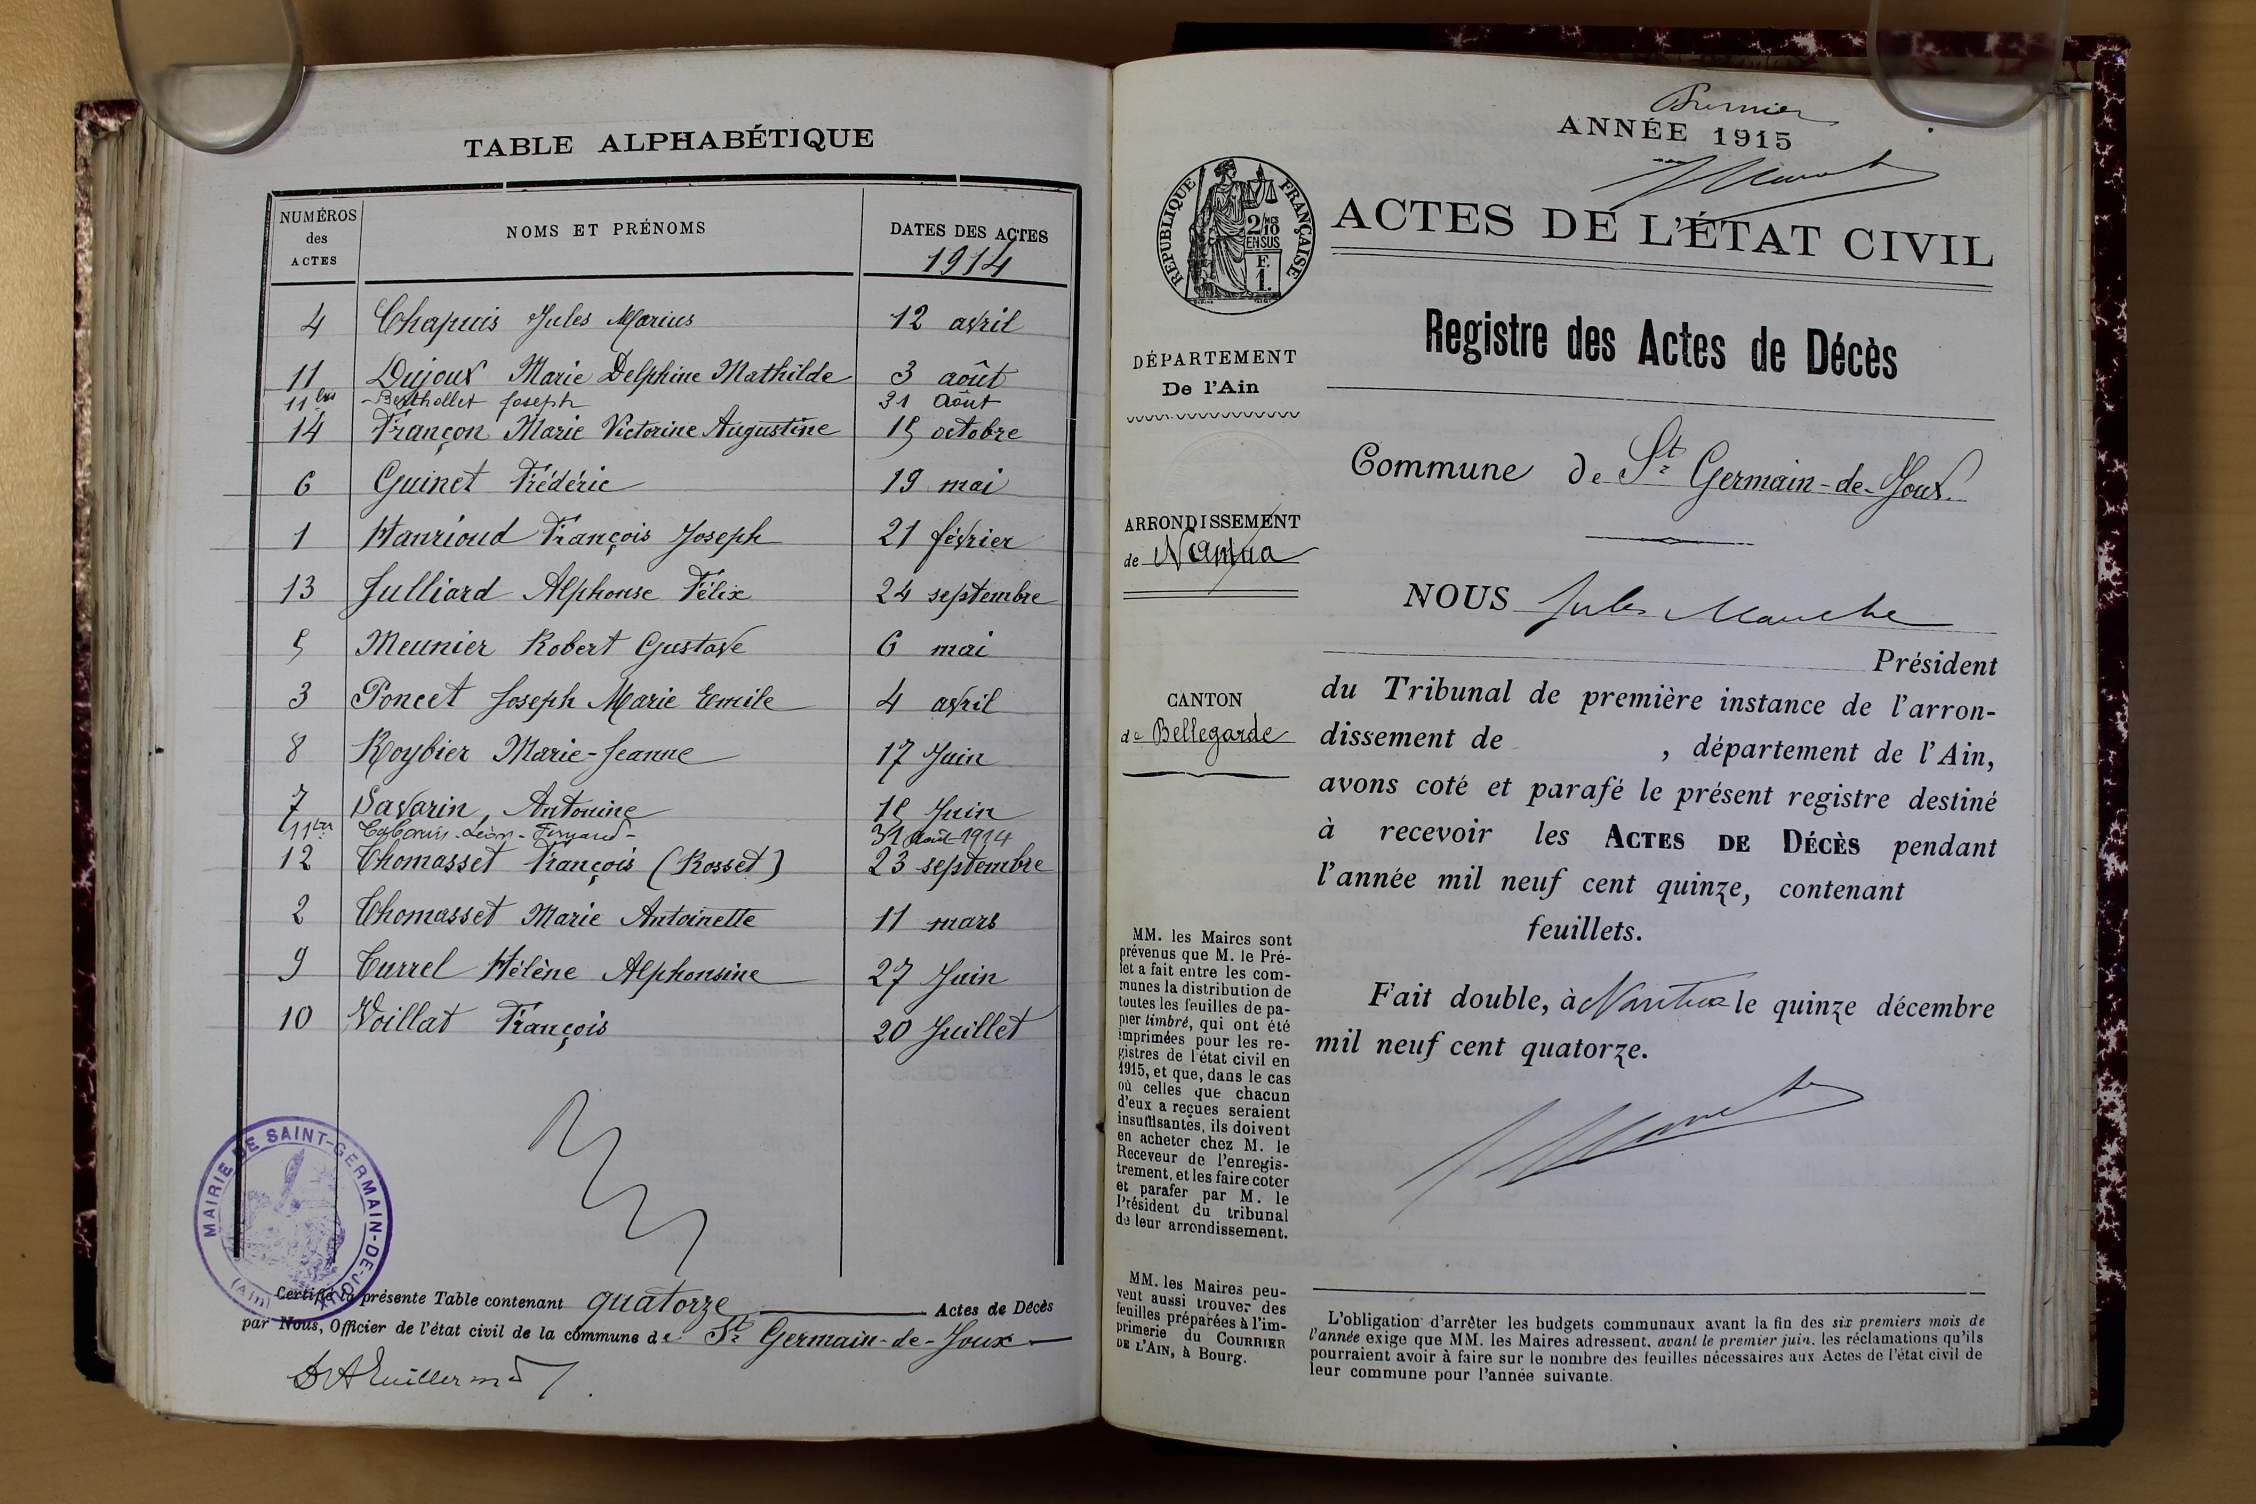 TABLE ALPHABÉTIQUE
NUMÉROS des ACTES NOMS ET PRÉNOMS DATES DES ACTES
1914
4 Chapuis Jules Marius 12 avril
11 Dujoux Marie Delphine Mathilde 3 août
11 bis Berthollet Joseph 31 Août
14 Françon Marie Victorine Augustine 15 octobre
6 Guinet Frédéric 19 mai
1 Hanrioud François Joseph 21 février
13 Julliard Alphonse Félix 24 septembre
5 Meunier Robert Gustave 6 mai
3 Poncet Joseph Marie Emile 4 avril
8 Roybier Marie-Jeanne 17 Juin
7 Savarin, Antoine 15 Juin
11 ter Léon-Fernand- 31 Août 1914
12 Thomasset François (Rosset) 23 septembre
2 Thomasset Marie Antoinette 11 mars
9 Turrel Hélène Alphonsine 27 Juin
10 Voillat François 20 Juillet
MAIRIE DE SAINT-GERMAIN-DE-JOUX
(Ain)
Certifié la présente Table contenant quatorze Actes de Décès
par Nous, Officier de l'état civil de la commune de St Germain-de-Joux
Premier
ANNÉE 1915
RÉPUBLIQUE FRANÇAISE
2/10 MES
EN SUS
F.
1.
ACTES DE L'ÉTAT CIVIL
Registre des Actes de Décès
DÉPARTEMENT
De l'Ain
Commune de St Germain-de-Joux.
ARRONDISSEMENT
de Nantua
NOUS Jules
Président
CANTON
de Bellegarde
du Tribunal de première instance de l'arron-
dissement de , département de l'Ain,
avons coté et parafé le présent registre destiné
à recevoir les ACTES DE DÉCÈS pendant
l'année mil neuf cent quinze, contenant
feuillets.
Fait double, à Nantua le quinze décembre
mil neuf cent quatorze.
MM. les Maires sont
prévenus que M. le Pré-
fet a fait entre les com-
munes la distribution de
toutes les feuilles de pa-
pier timbré, qui ont été
imprimées pour les re-
gistres de l'état civil en
1915, et que, dans le cas
où celles que chacun
d'eux a reçues seraient
insuffisantes, ils doivent
en acheter chez M. le
Receveur de l'enregis-
trement, et les faire coter
et parafer par M. le
Président du tribunal
de leur arrondissement.
MM. les Maires peu-
vent aussi trouver des
feuilles préparées à l'im-
primerie du COURRIER
DE L'AIN, à Bourg.
L'obligation d'arrêter les budgets communaux avant la fin des six premiers mois de
l'année exige que MM. les Maires adressent, avant le premier juin, les réclamations qu'ils
pourraient avoir à faire sur le nombre des feuilles nécessaires aux Actes de l'état civil de
leur commune pour l'année suivante.